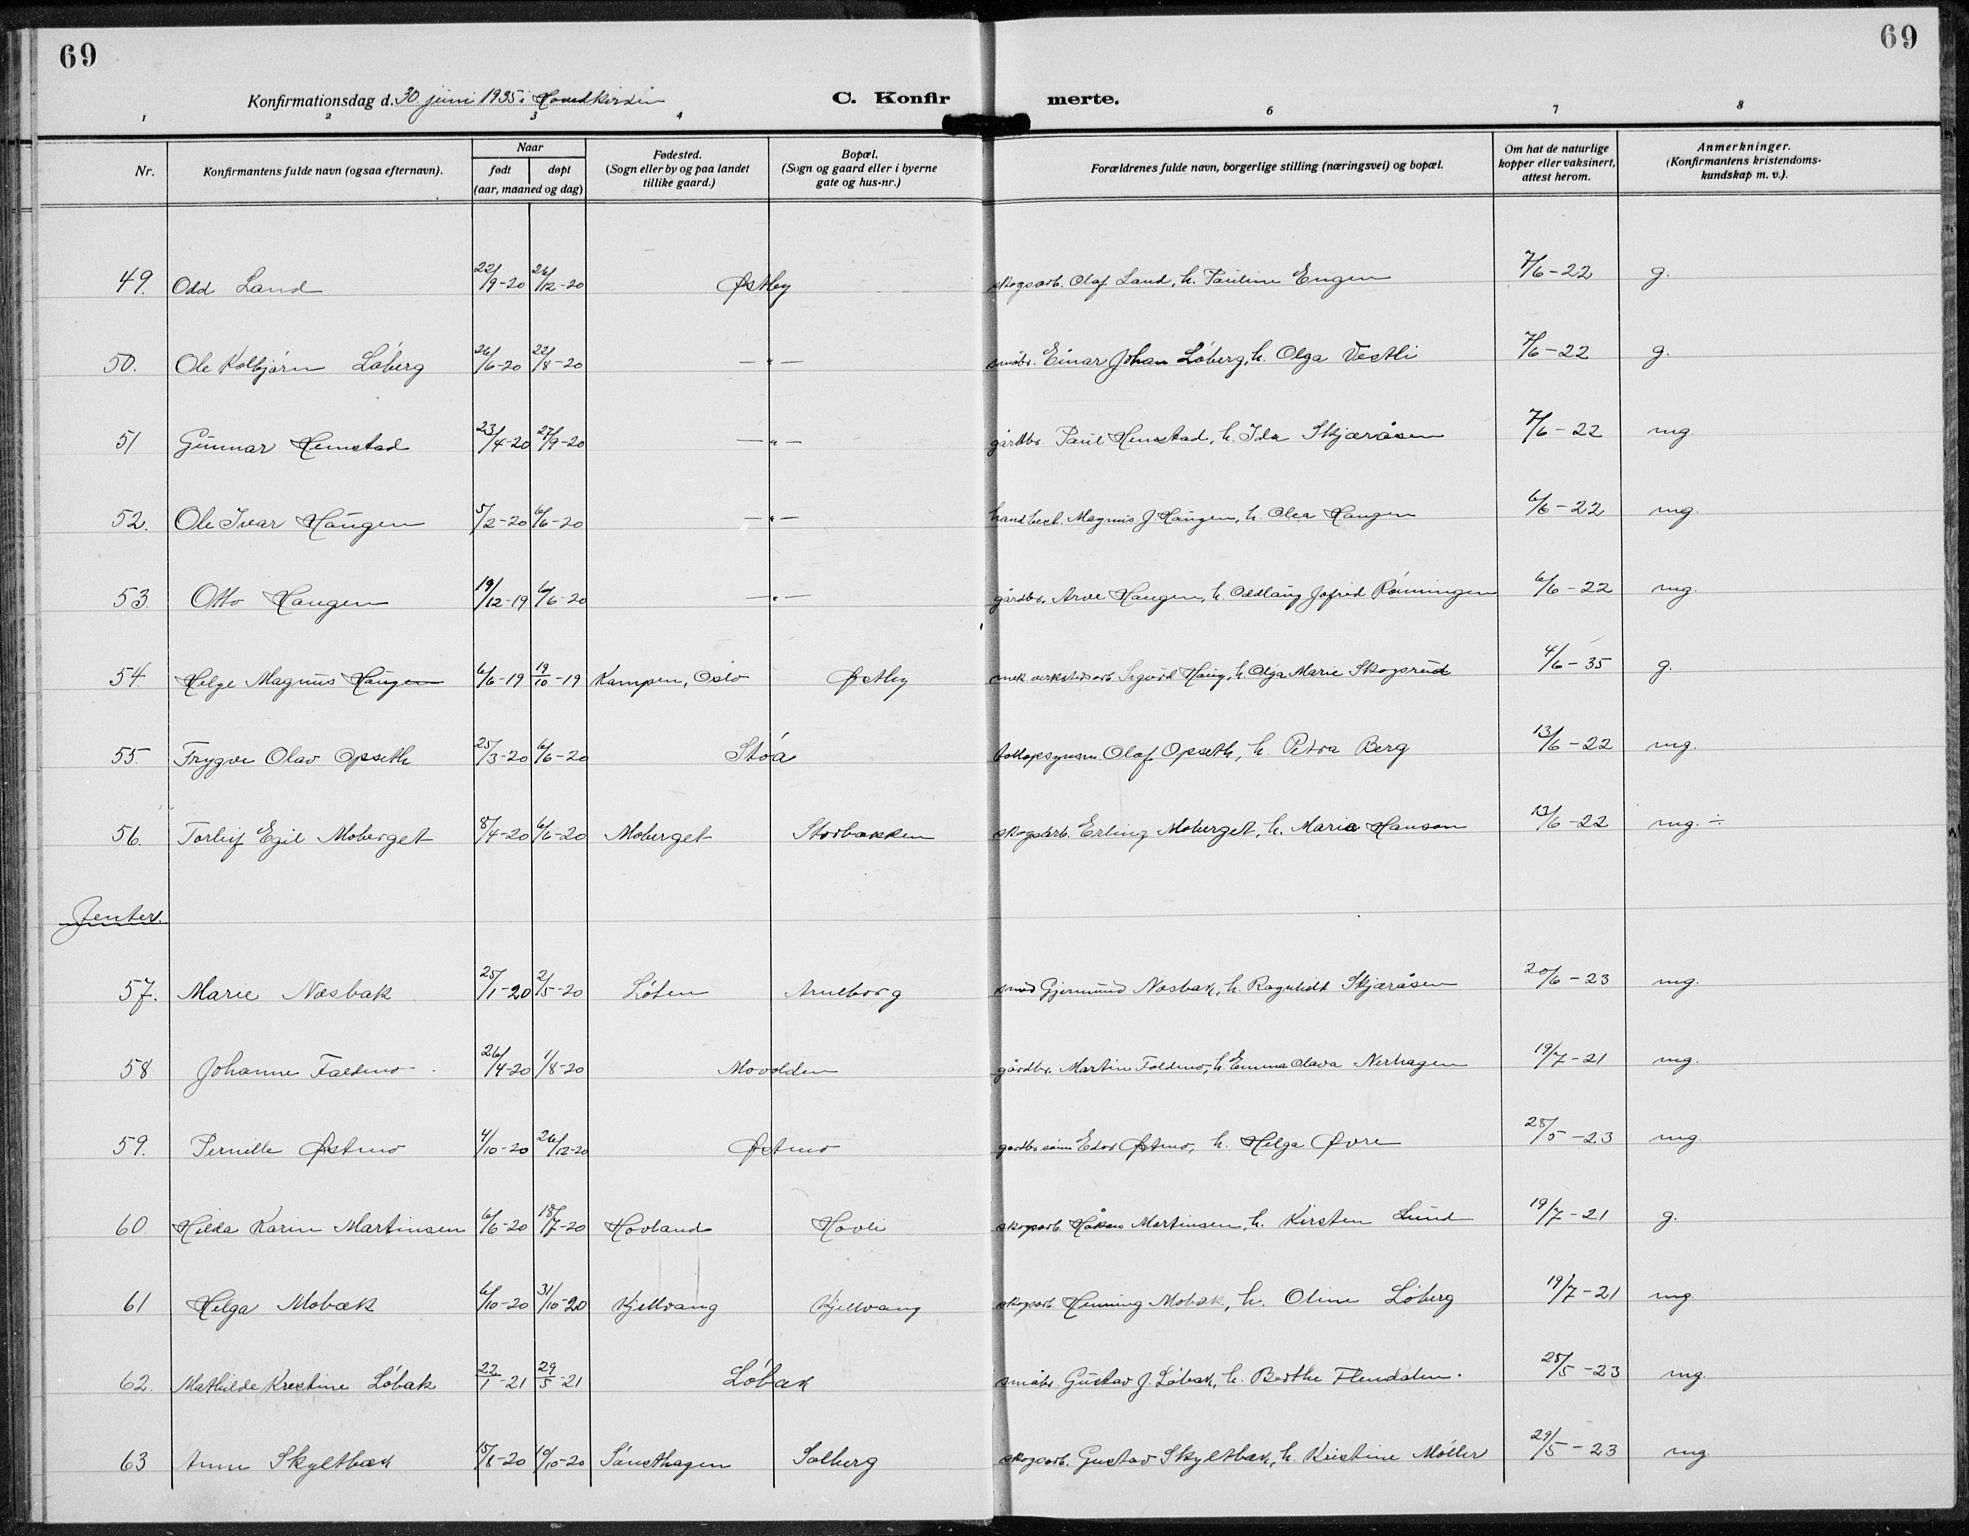 69
69
Konfirmationsdag d. 30 juni 1935 i Hovedkirken
C. Konfirmerte.
1 2 3 4 6 7 8
Nr.
Konfirmantens fulde navn (ogsaa efternavn).
Naar
født
døpt
(aar, maaned og dag)
Fødested.
(Sogn eller by og paa landet
tillike gaard.)
Bopæl.
(Sogn og gaard eller i byerne
gate og hus-nr.)
Forældrenes fulde navn, borgerlige stilling (næringsvei) og bopæl.
Om hat de naturlige
kopper eller vaksinert,
attest herom.
Anmerkninger.
(Konfirmantens kristendoms-
kundskap m. v.).
49. Odd Land 22/9-20 26/12-20 Østby skogsarb. Olaf Land, h. Pauline Engen 7/6-22 g.
50. Ole Kolbjørn Løberg 26/6-20 22/8-20 —"— småbr. Einar Johan Løberg, h. Olga Vestli 7/6-22 g.
51 Gunnar Hemstad 23/4-20 27/9-20 —"— gårdbr. Paul Hemstad, h. Ida Skjæråsen 7/6-22 mg.
52. Ole Ivar Haugen 5/2-20 6/6-20 —"— Magnus J Haugen, h. Olea Haugen 6/6-22 mg.
53 Otto Haugen 19/12-19 6/6-20 —"— gårdbr. Arve Haugen, h. Oddlaug Jofrid Rønningen 6/6-22 mg.
54 Helge Magnus Haugen 6/6-19 19/10-19 Kampen, Oslo Østby mek. verkstedsarb. Sigurd Haug, h. Olga Marie Skogsrud 4/6-35 g.
55 Trygve Olav Opseth 25/3-20 6/6-20 Støa tollopsynsm. Olaf Opseth, h. Petra Berg 13/6-22 mg.
56. Torleif Egil Moberget 8/4-20 6/6-20 Moberget Storbækken skogsarb. Erling Moberget, h. Marie Hanson 13/6-22 mg. ÷
Jenter.
57. Marie Næsbak 25/1-20 2/5-20 Løten Arneborg smed Gjermund Næsbak, h. Ragnhild Skjæråsen 20/6-23 mg.
58 Johanne Faldmo 26/4-20 1/8-20 Movolden gårdbr. Martin Foldmo, h. Emma Olava Nerhagen 19/7-21 mg.
59. Pernille Østmo 4/10-20 26/12-20 Østmo gårdbr.sønn Edor Østmo, h. Helga Øvre 28/5-23 mg
60. Hilda Karin Martinsen 6/6-20 18/7-20 Hovland Hovli skogsarb. Håkon Martinsen, h. Kirsten Lund 19/7-21 g.
61 Helga Mobæk 6/10-20 31/10-20 Kjellvang Kjellvang skogsarb. Henning Mobæk, h. Oline Løberg 19/7-21 mg.
62. Mathilde Kristine Løbak 22/1-21 29/5-21 Løbæk småbr. Gustav J. Løbak, h. Berthe Flendalen. 28/5-23 mg.
63 Anne Skyltbæk 15/8-20 10/10-20 Sønsthagen Solberg skogsarb. Gustav Skyltbæk, h. Kristine Møller 29/5-23 mg